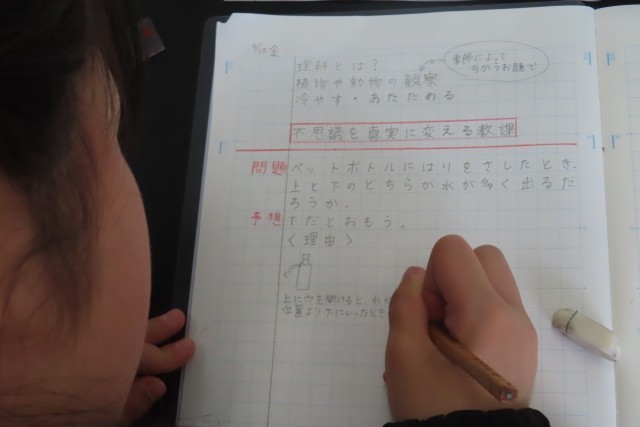 4/10金
理科とは？
植物や動物の観察
季節によって
ちがうお願で
冷やす・あたためる
不思議を真実に変える教課
問題 ペットボトルにはりをさしたとき、
上と下のどちらが水が多く出るだ
ろうか。
予想 下だとおもう。
〈理由〉
上に穴を開けると、水が
位置より下にいったとき